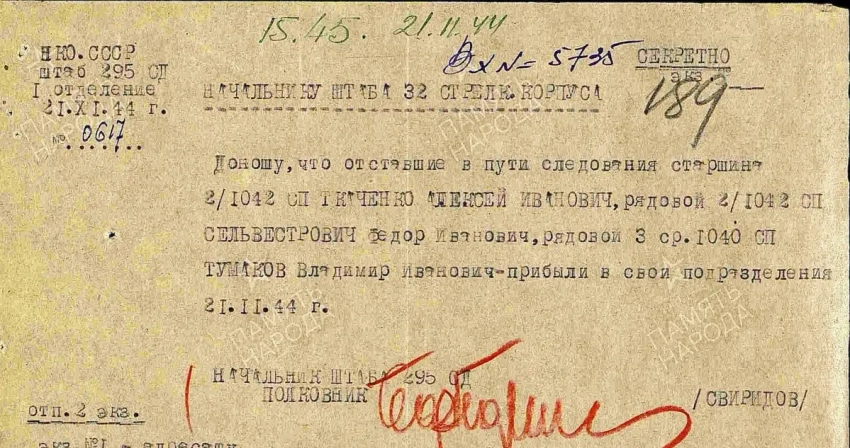 15.45. 21.11.44
НКО.СССР
штаб 295 СД
I отделение
21.XI.44 г.
№ 0617
Вх N= 5735
СЕКРЕТНО
экз
189
НАЧАЛЬНИКУ ШТАБА 32 СТРЕЛК.КОРПУСА
Доношу,что отставшие в пути следования старшина
2/1042 СП ТКАЧЕНКО АЛЕКСЕЙ ИВАНОВИЧ,рядовой 2/1042 СП
СЕЛЬВЕСТРОВИЧ Федор Иванович,рядовой 3 ср.1040 СП
ТУМАКОВ Владимир Иванович-прибыли в свои подразделения
21.11.44 г.
НАЧАЛЬНИК ШТАБА 295 СД
ПОЛКОВНИК
/СВИРИДОВ/
отп.2 экз.
экз №1 - адресату
ПАМЯТЬ
НАРОДА